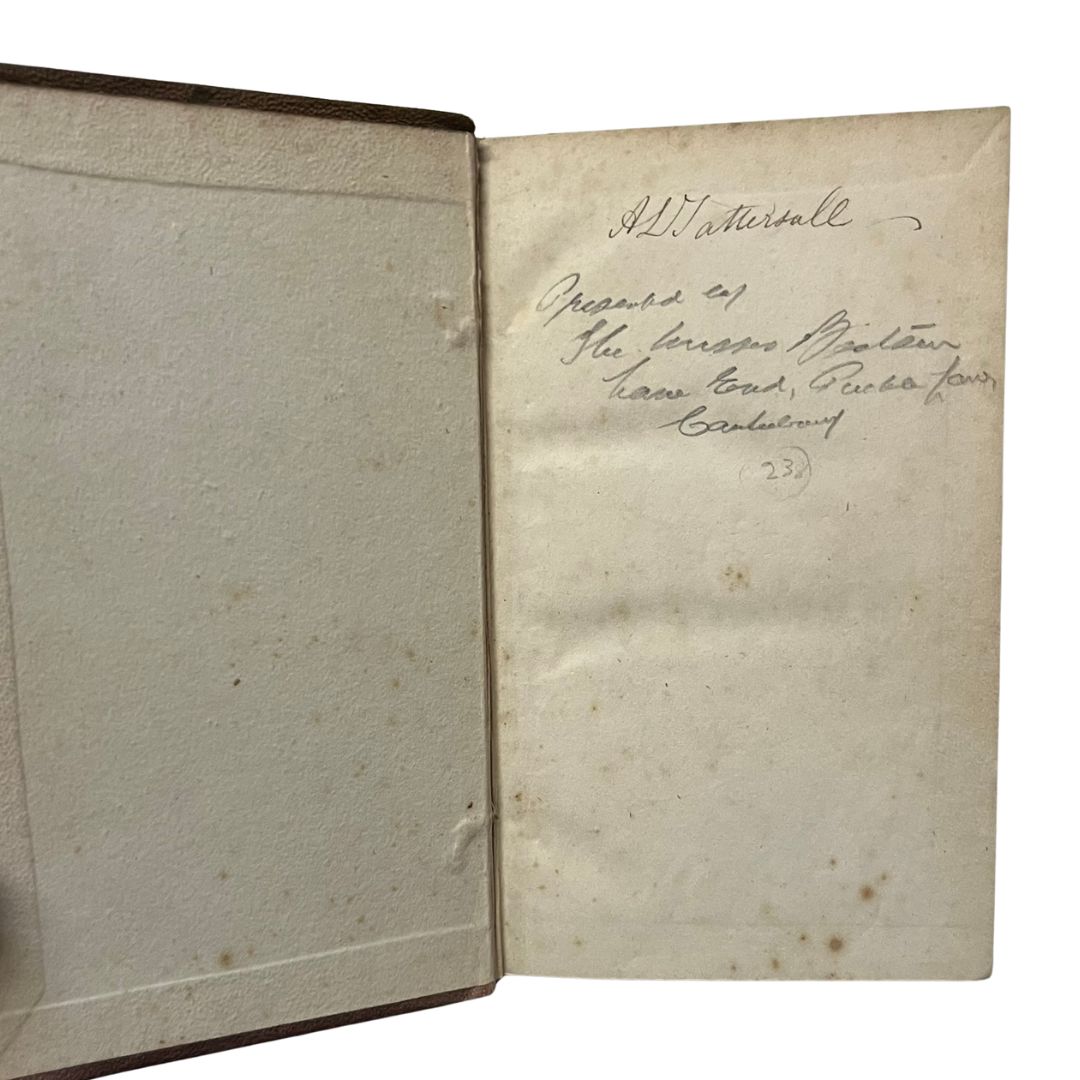 A L Tattersall
Presented by
The Misses
Lane End,
Canterbury
23